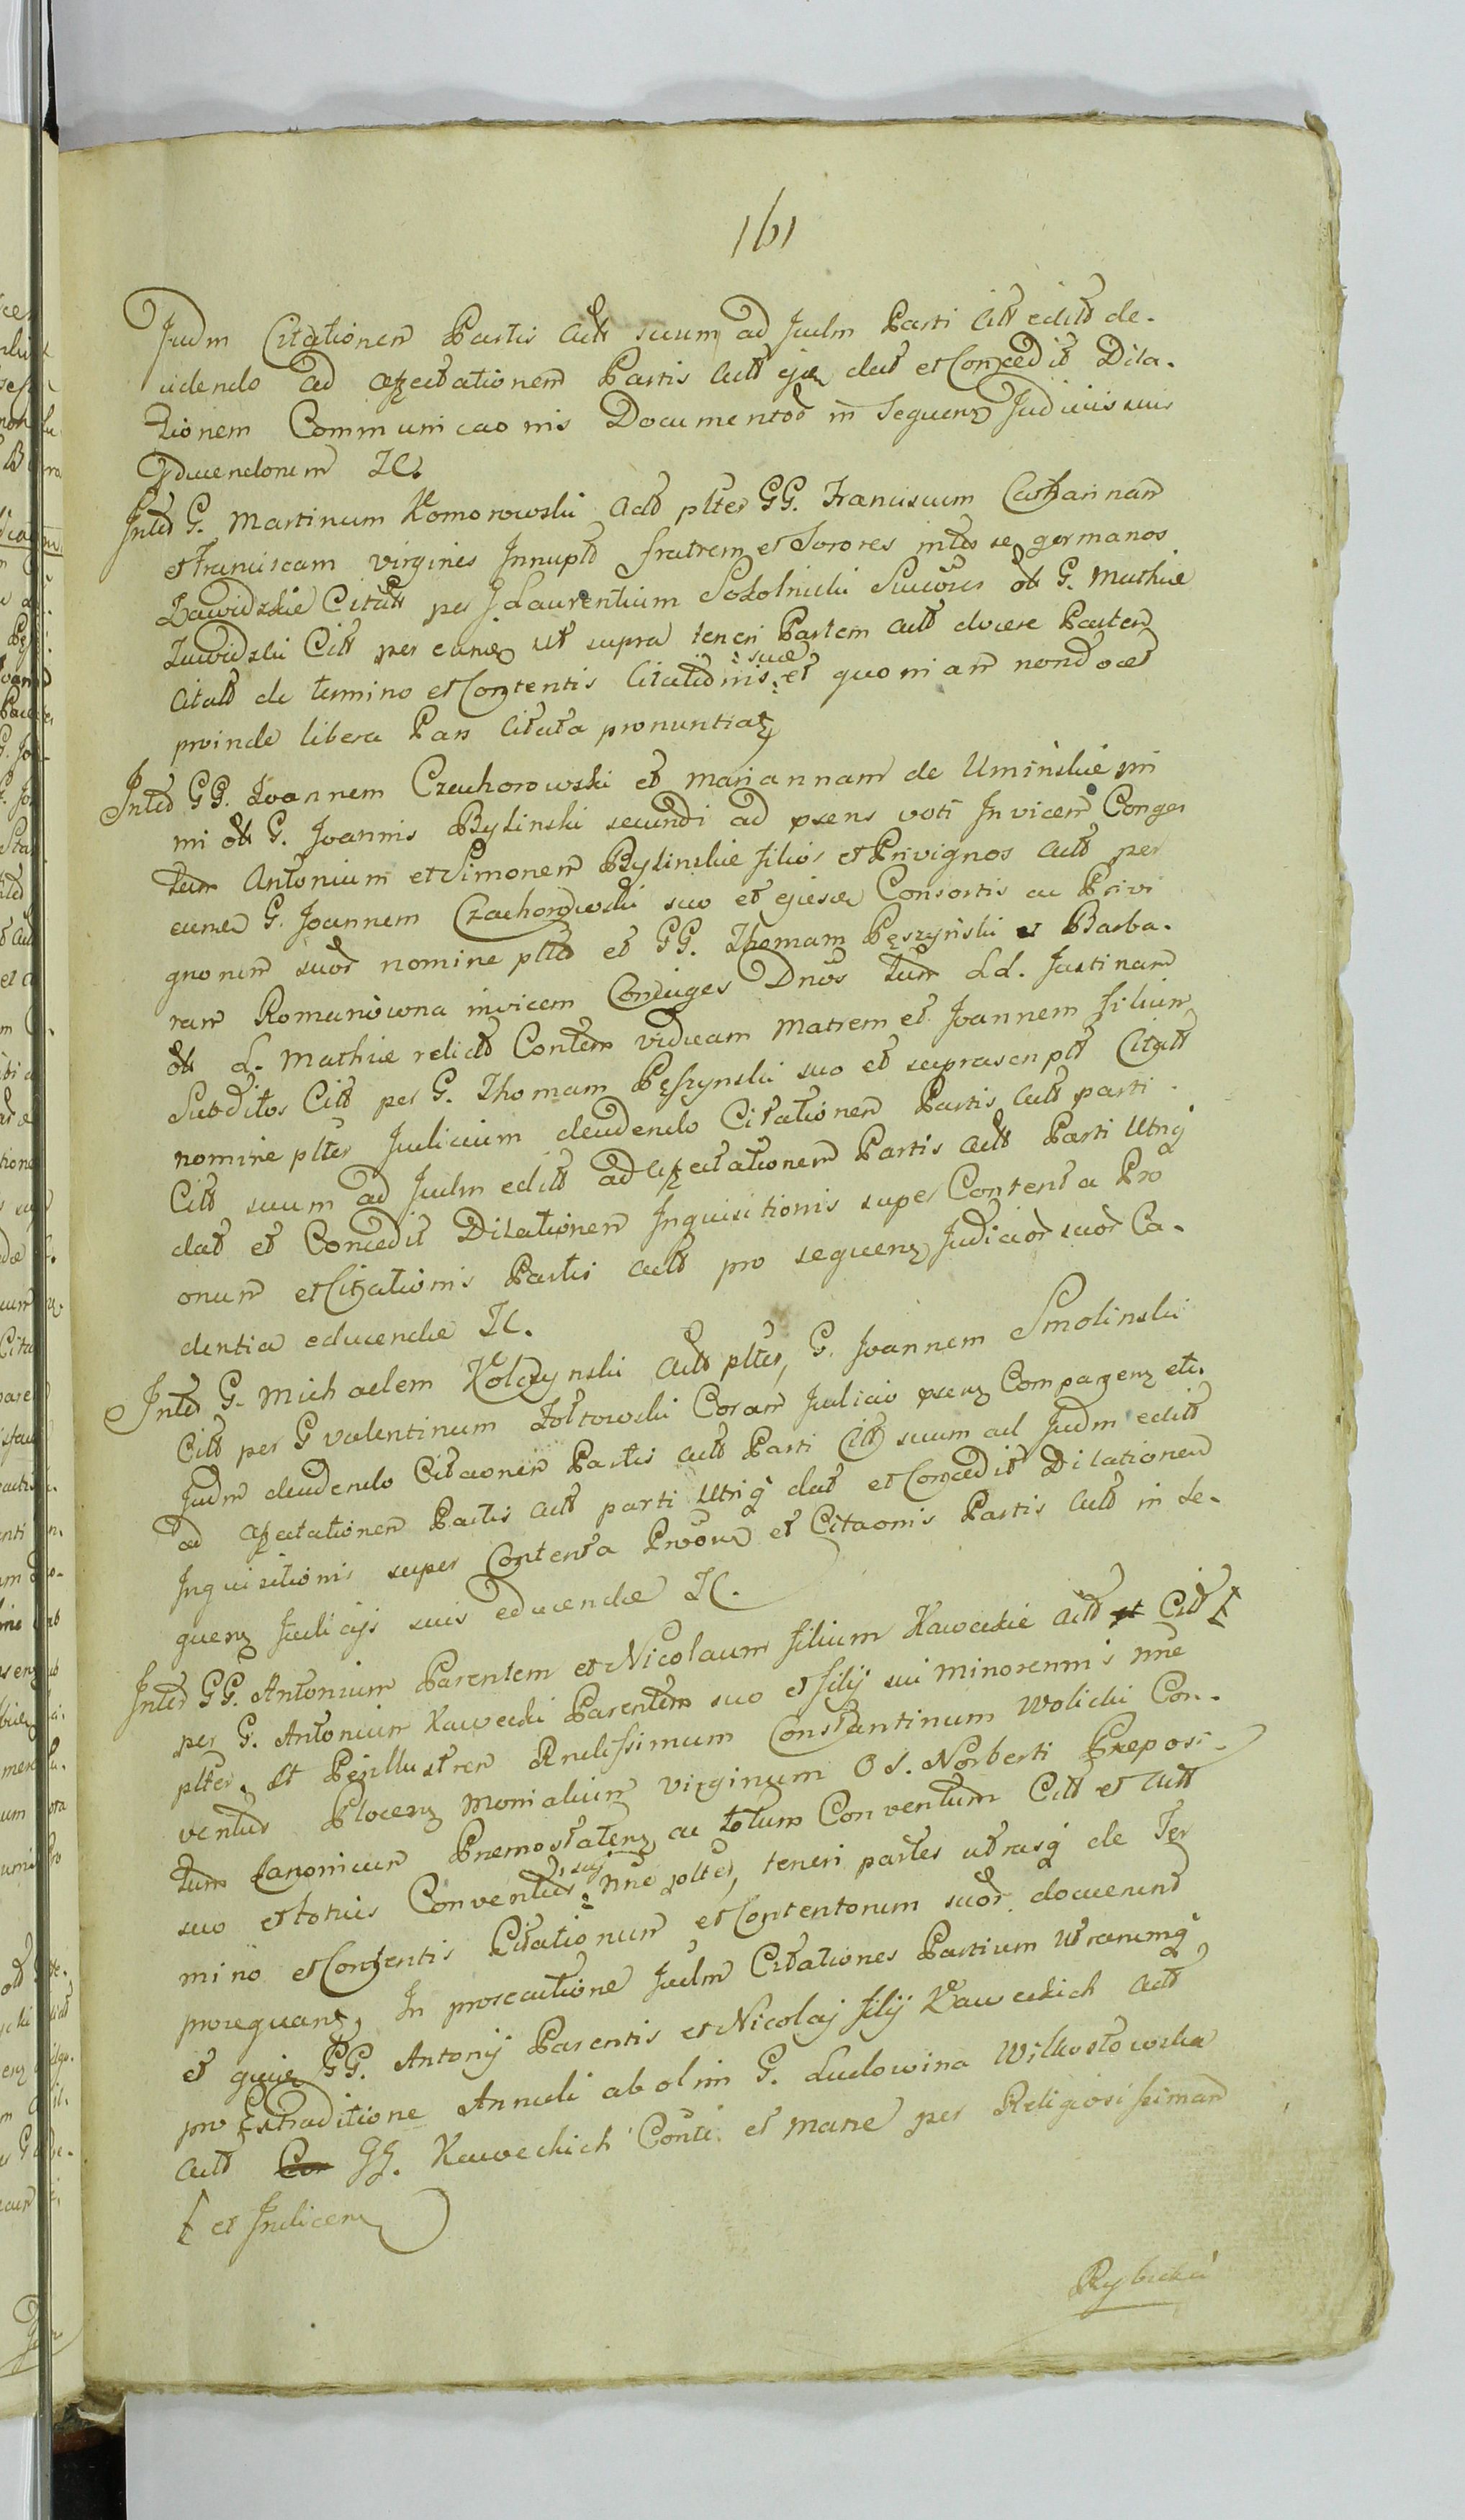 161
Judm Citationem Partis Actt suum ad Judm Parti Citt editt de-
cidendo ad affectationem Partis Actt ejæ dat et Concedit Dila-
tionem Communicaonis Documentor in sequenz Judiciis suis
Educendorum IC.
Inter G. Martinum Komorowski Actt plter GG. Franciscum Catharinam
et Franciscam virgines Innuptt fratrem et Sorores inter se germanos
Zawidzkie Citatt per G Laurentium Sokolnicki Succores olt G. Mathiæ
Zawidzki Citt per eundem ut supra teneri Partem Actt docere Partem
Citatt de termino et Contentis Citationis suæ et quoniam non docet
proinde libera Pars Citata pronuntiatz
Inter GG. Joannem Czachorowski et Mariannam de Uminskie pri
mi olt G. Joannis Bylinski secundi ad præns voti Invicem Conges
tum Antonium et Simonem Bylinskie filios et Privignos Actt per
eumd G. Joannem Czachorowski suo et ejusd Consortis ac Privi
gnorum suor nomine pltter et GG. Thomam Pęszyński et Barba-
ram Romanowna invicem Conjuges Dnos tum LL. Justinam
olt L. Mathiæ relictt Contem viduam Matrem et Joannem Filium
Subditos Citt per G. Thomam Pęszynski suo et suprascriptt Citatt
nomine plter Judicium decidendo Citationem Partis Actt parti
Citt suum ad Judm editt ad affectationem Partis Actt Parti Utriq
dat et Concedit Dilationem Inquisitionis super Contenta Pro
onum et Citationis Partis Actt pro sequenz Judicior suor Ca-
dentia educendæ IC.
Inter G. Michaelem Kolczynski Actt plter, G. Joannem Smolinski
Citt per G Valentinum Zołtowski Coram Judicio præsenz Comparenz etc.
Judm decidendo Citaonem Partis Actt Parti Citt suum ad Judm editt
ad affectationem Partis Actt parti Utriq dat et Concedit Dilationem
Inquisitionis super Contenta Proonum et Citaonis Partis Actt in se-
quenz Judicijs suis educendæ IC.
Inter GG. Antonium Parentem et Nicolaum filium Kaweckie Actt et Citt
per G. Antonium Kawecki Parentem suo et filij sui minorennis nne
plter, et Perillustrem Rndissimum Constantinum Wolicki Con-
ventus Plocenz Monialium Virginum O S. Norberti Præposi-
tum Canonicum Premostatenz ac totum Conventum Citt et Actt
suo et totius Conventus sui nne plter, teneri partes utrasq de Ter
mino et Contentis Citationum et Contentorum suor docuerunt
prosequanz, In prosecutione Judm Citationes Partium Utrarumq
et quiæ GG. Antonij Parentis et Nicolaj filij Kaweckich Actt
pro Extraditione Annuli ab olim G. Ludowina Wilkostowska
Actt Con GG. Kaweckich Conti et Matre per Religiosissimam
et Indicem
Rybicki